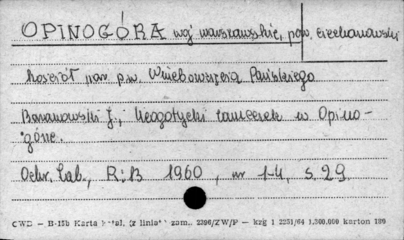 OPINOGÓRA woj. warszawskie, pow. ciechanowski
kościół par. p.w. Wniebowzięcia Pańskiego
Baranowski J., Neogotycki zameczek w Opino-
górze.
Ochr. Zab., R:13 1960, nr 1-4, s. 29.
CWD — B-15b Karta zam. 2396/ZW/P — krg 1 2231/64 1.500.000 karton 180